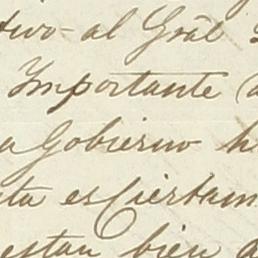 tivo al Grãl
Importante
Gobierno h
ta es Ciertam
estan bien a